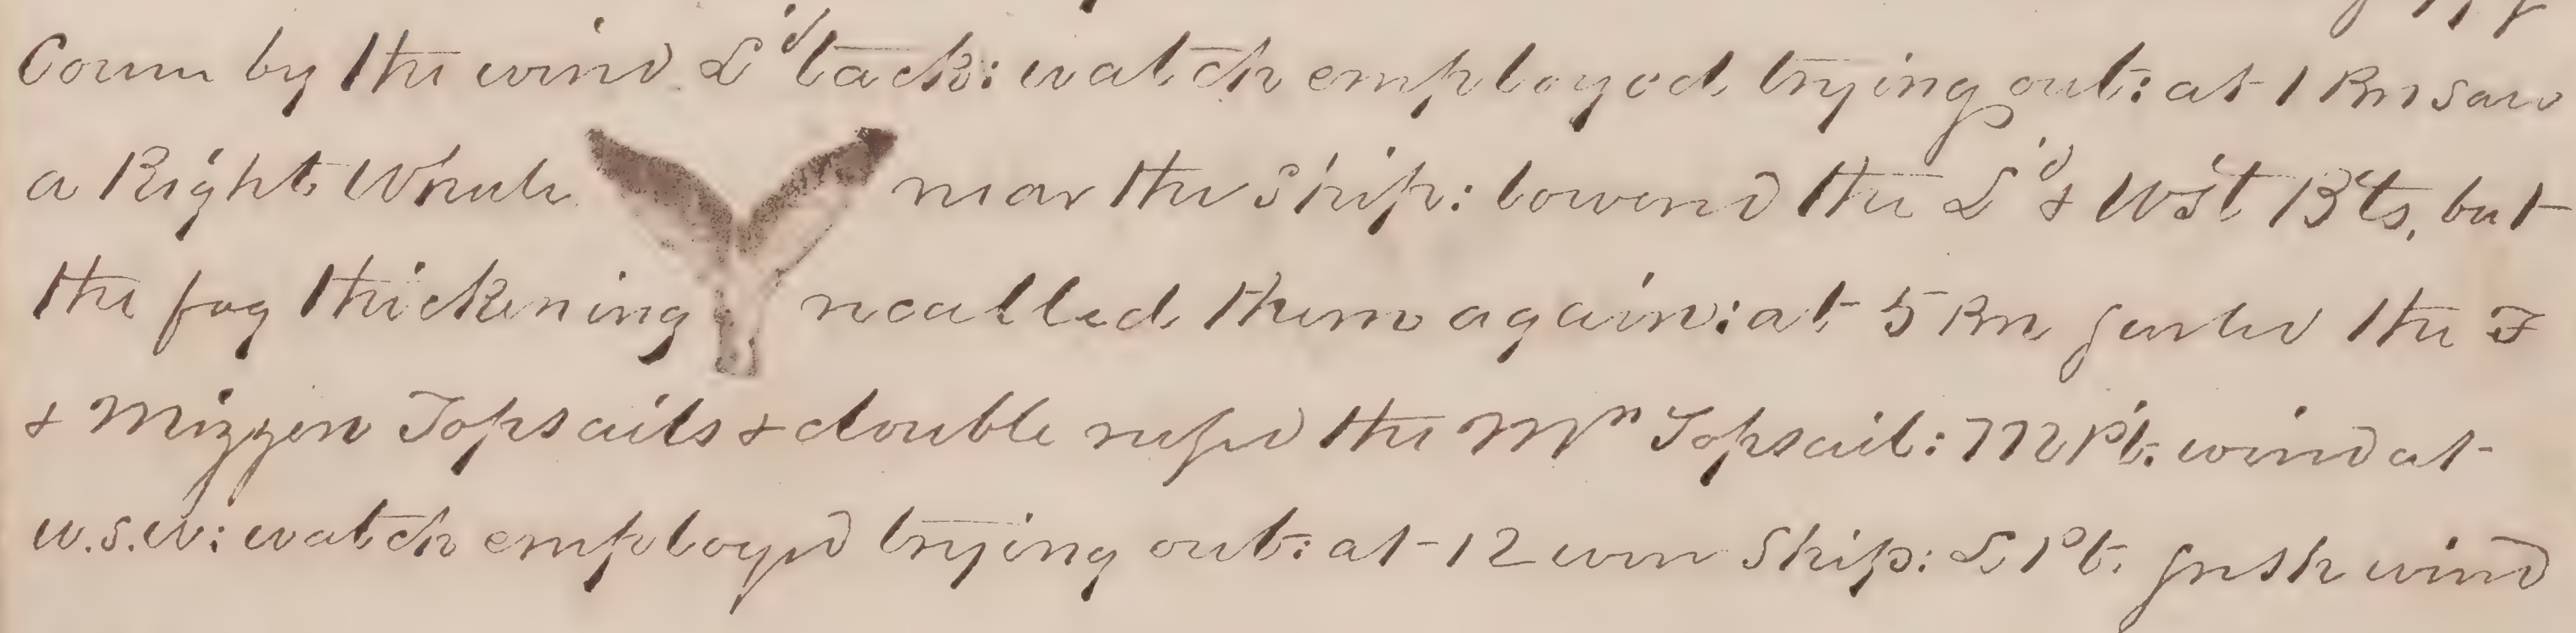 Cours by the wind L'd tack: watch employed trying out: at 1 Pm saw
a Right Whale near the Ship: lowered the L'd & Wst B'ts, but
the fog thickening recalled them again: at 5 Pm furled the F
& Mizzen Topsails & double reefed the Mn Topsail: M Pt. wind at
w.s.w: watch employed trying out: at 12 wore Ship: L Pt. fresh wind